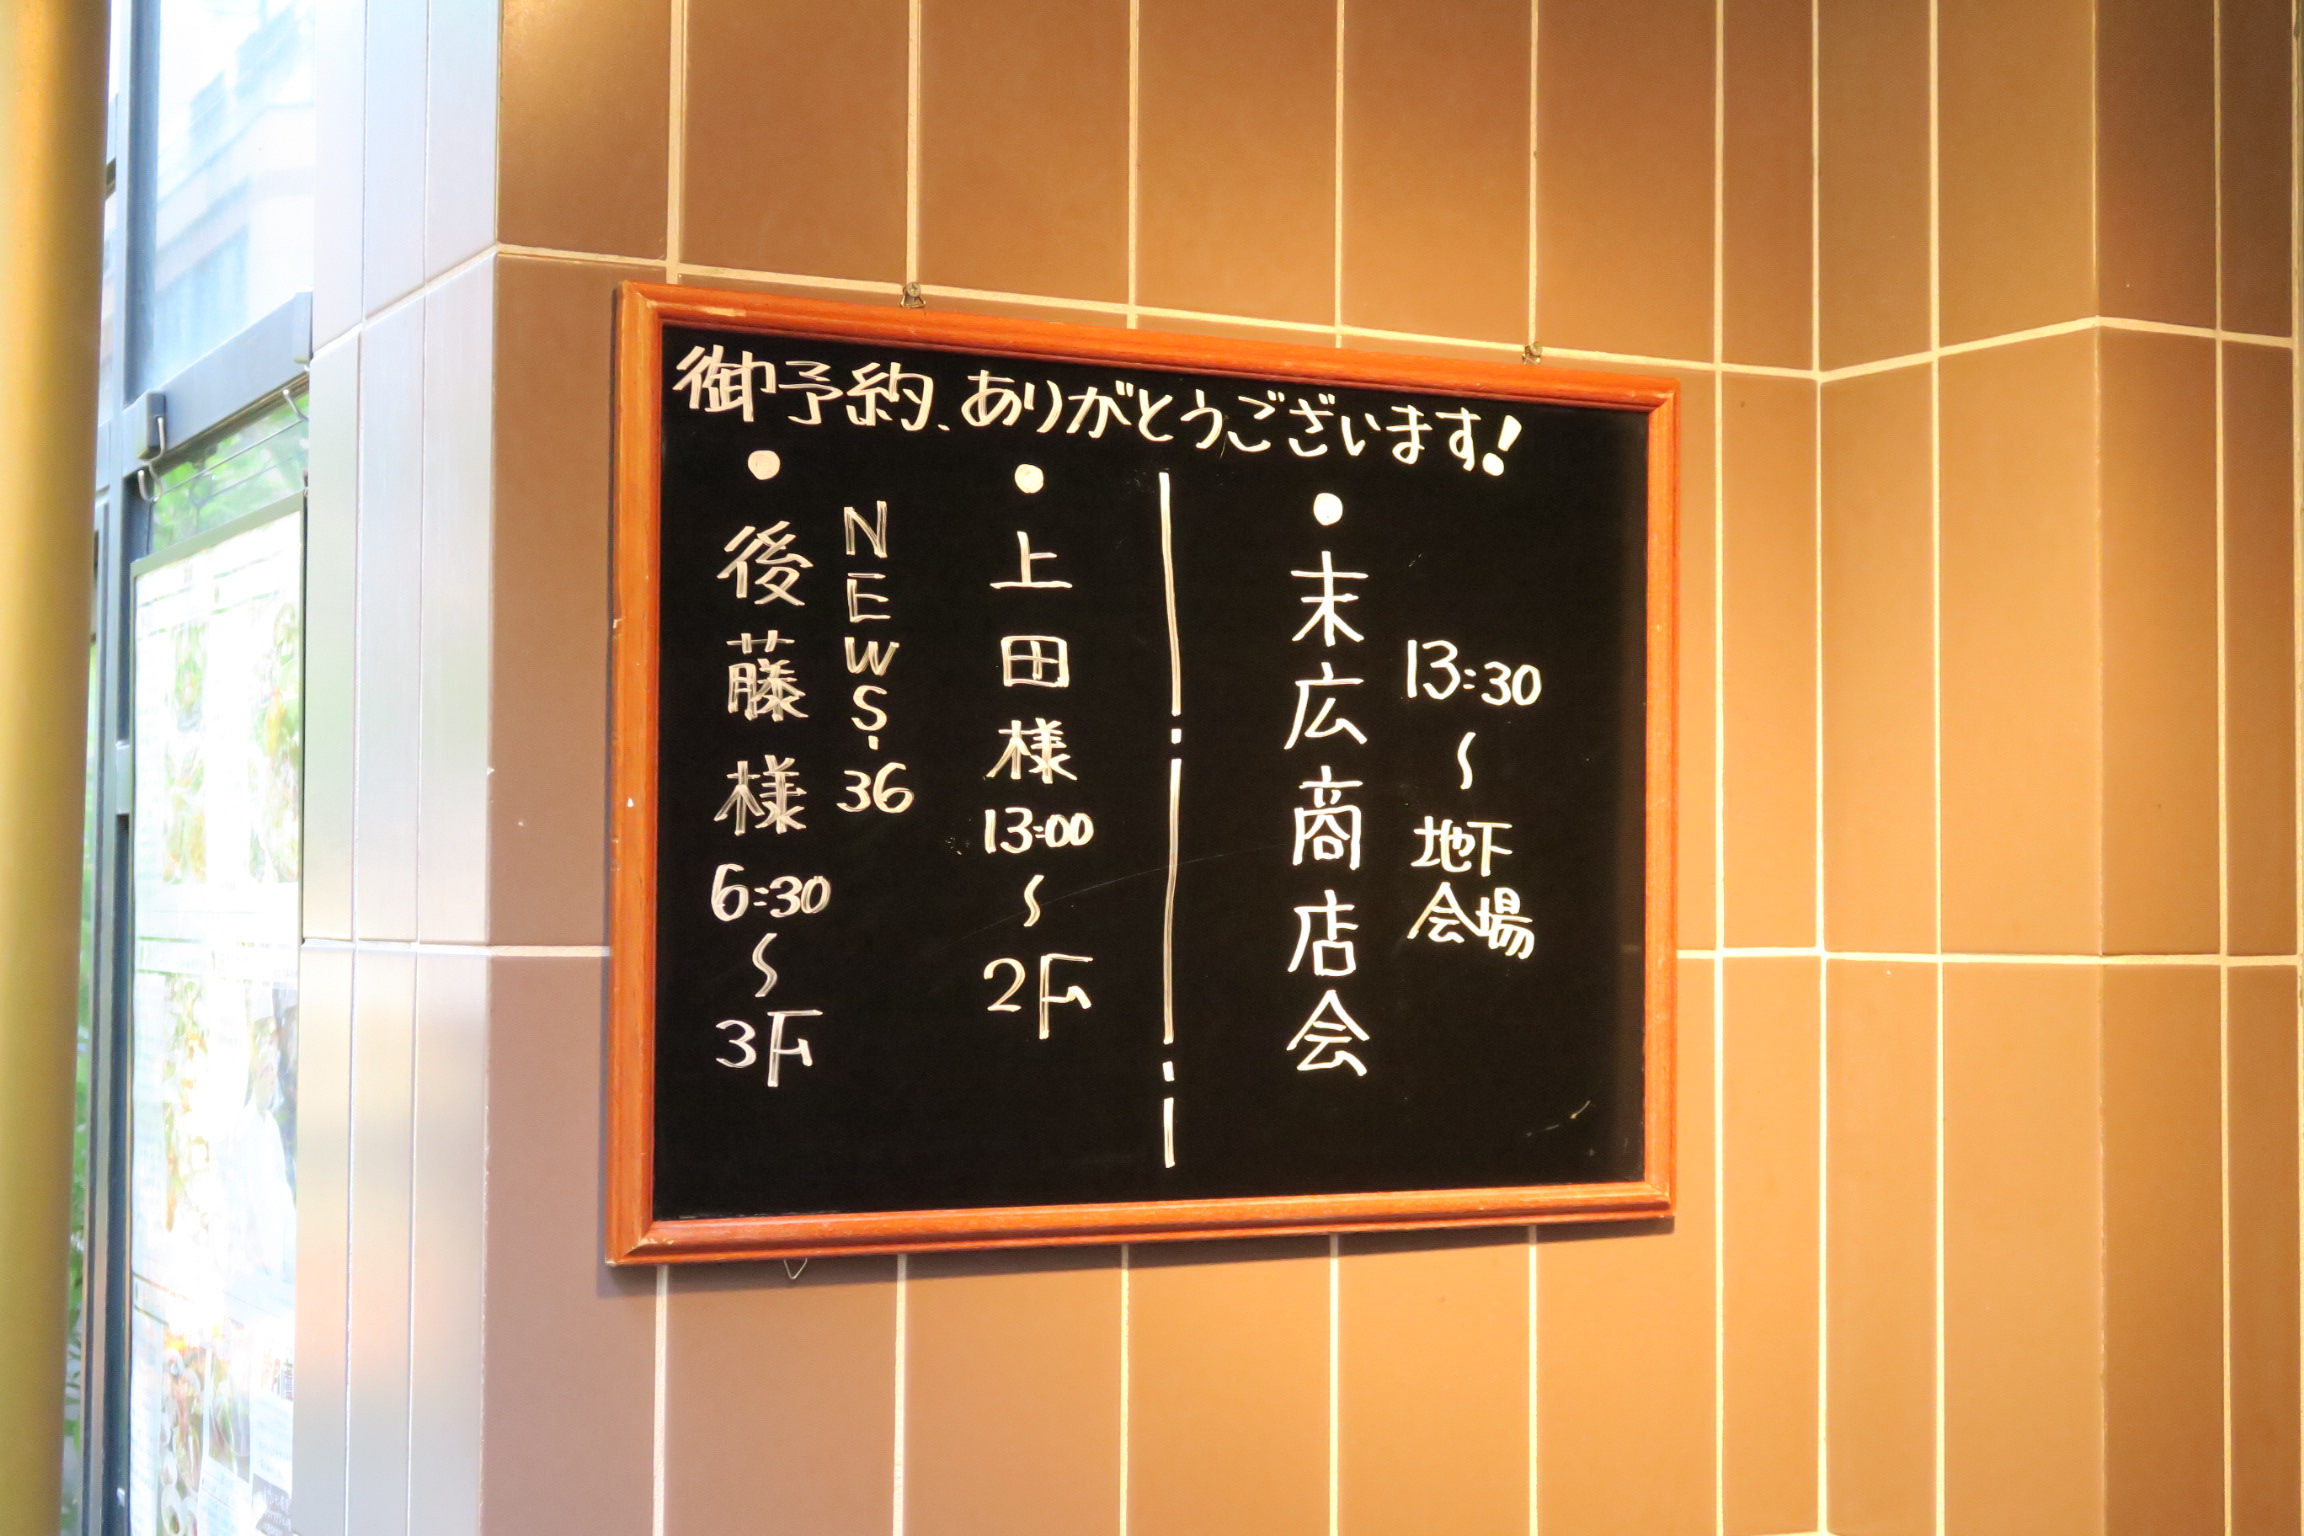 御予約、ありがとうございます!
13:30〜地下会場
● 末広商店会
● 上田様 13:00〜2F
NEWS・36
● 後藤様 6:30〜3F